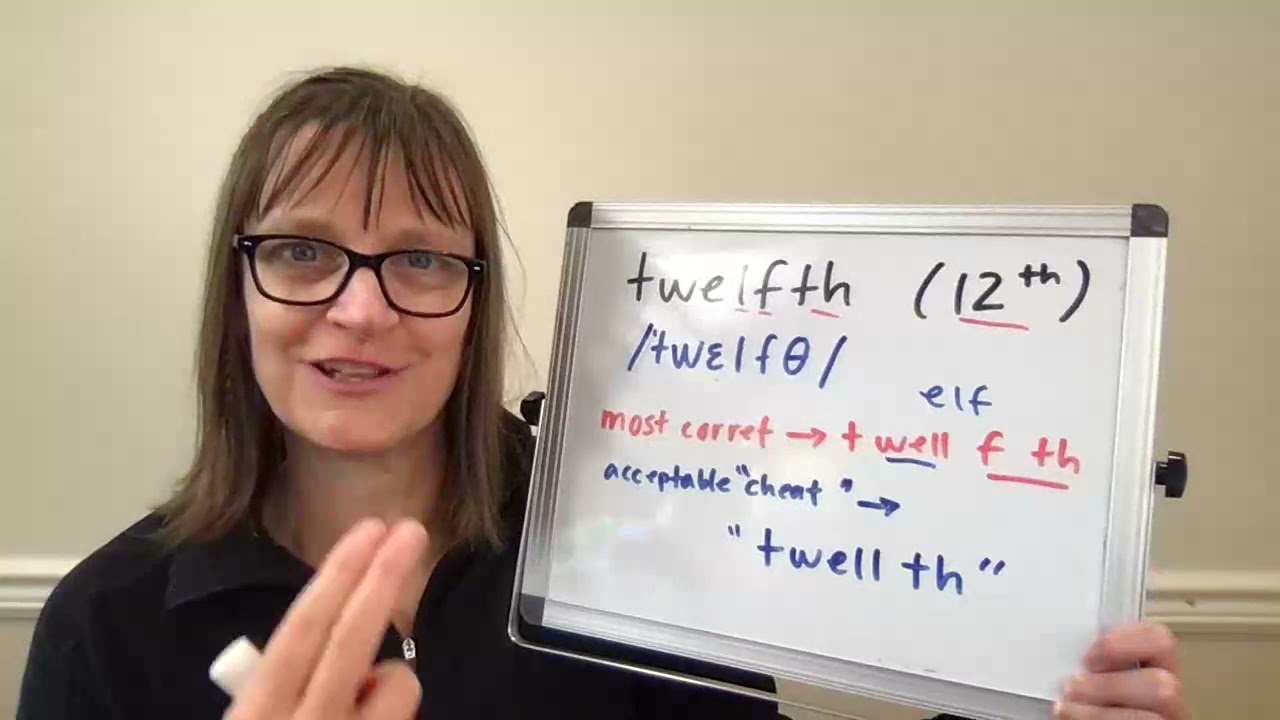 twelfth (12th)
/twɛlfθ/
elf
most corret → t well f th
acceptable "cheat" →
"twell th"